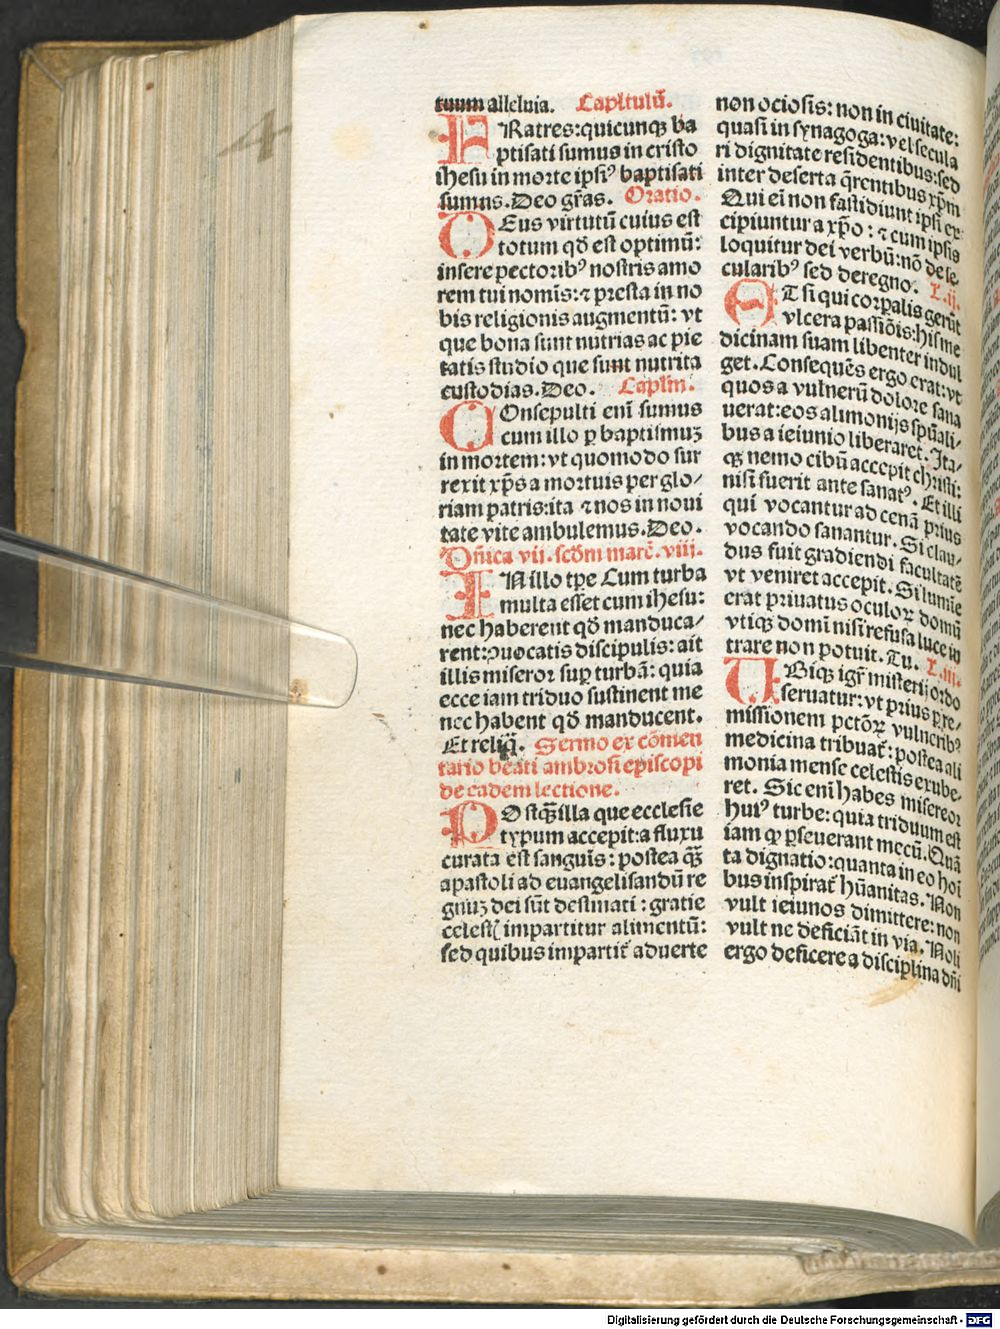 4
tuum alleluia. Capitulū.
FRatres: quicunqꝫ ba
ptisati sumus in cristo
ihesu in morte ipsiꝰ baptisati
sumus. Deo gr̄as. Oratio.
DEus virtutū cuius est
totum qd̄ est optimū:
insere pectoribꝰ nostris amo
rem tui nomis: ⁊ presta in no
bis religionis augmentū: vt
que bona sunt nutrias ac pie
tatis studio que sunt nutrita
custodias. Deo. Caplm̄.
COnsepulti eni̅ sumus
cum illo ꝑ baptismuꝫ
in mortem: vt quomodo sur
rexit xp̄s a mortuis per glo⸗
riam patris: ita ⁊ nos in noui
tate vite ambulemus. Deo.
Dn̄ica vii. scd̄m marc̄. viii.
IN illo tp̄e Cum turba
multa esset cum ihesu:
nec haberent qd̄ manduca⸗
rent: ꝯuocatis discipulis: ait
illis miseror suꝑ turbā: quia
ecce iam triduo sustinent me
nec habent qd̄ manducent.
Et reliq̄. Sermo ex cōmen
tario beati ambrosi episcopi
de eadem lectione.
POstq̄ꝫ illa que ecclesie
typum accepit: a fluxu
curata est sanguis̄: postea q̄ꝫ
apastoli ad euangelisandū re
gnuꝫ dei sūt destinati: gratie
celesti impartitur alimentū:
sed quibus impartit̄ aduerte
non ociosis: non in ciuitate:
quasi in synagoga: vel secula
ri dignitate residentibus: sed
inter deserta q̄rentibus xp̄m
Qui ei̅ non fastidiunt ipsi ex
cipiuntur a xp̄o: ⁊ cum ipsis
loquitur dei verbū: nō de se⸗
cularibꝰ sed de regno. L.ii.
ET si qui corꝑalis gerūt
vlcera passiōis: his me
dicinam suam libenter indul
get. Consequēs ergo erat: vt
quos a vulnerū dolore sana
uerat: eos alimonijs spūali⸗
bus a ieiunio liberaret. Ita⸗
qꝫ nemo cibū accepit christi:
nisi fuerit ante sanatꝰ. Et illi
qui vocantur ad cenā prius
vocando sanantur. Si clau⸗
dus fuit gradiendi facultatē
vt veniret accepit. Si lumīe
erat priuatus oculoꝝ domū
vtiqꝫ domini nisi refusa luce in
trare non potuit. Tu. L.iii.
UBiqꝫ igr̄ misterij ordo
seruatur: vt prius ꝑ re⸗
missionem pctōꝝ vulneribꝰ
medicina tribuat̄: postea ali
monia mense celestis exube⸗
ret. Sic eni̅ habes misereor
huiꝰ turbe: quia triduum est
iam qꝫ ꝑseuerant mecū. Quā
ta dignatio: quanta in eo hoī
bus inspirat̄ hūanitas. Non
vult ieiunos dimittere: non
vult ne deficiāt in via. Noli
ergo deficere a disciplina dn̄i
Digitalisierung gefördert durch die Deutsche Forschungsgemeinschaft - DFG